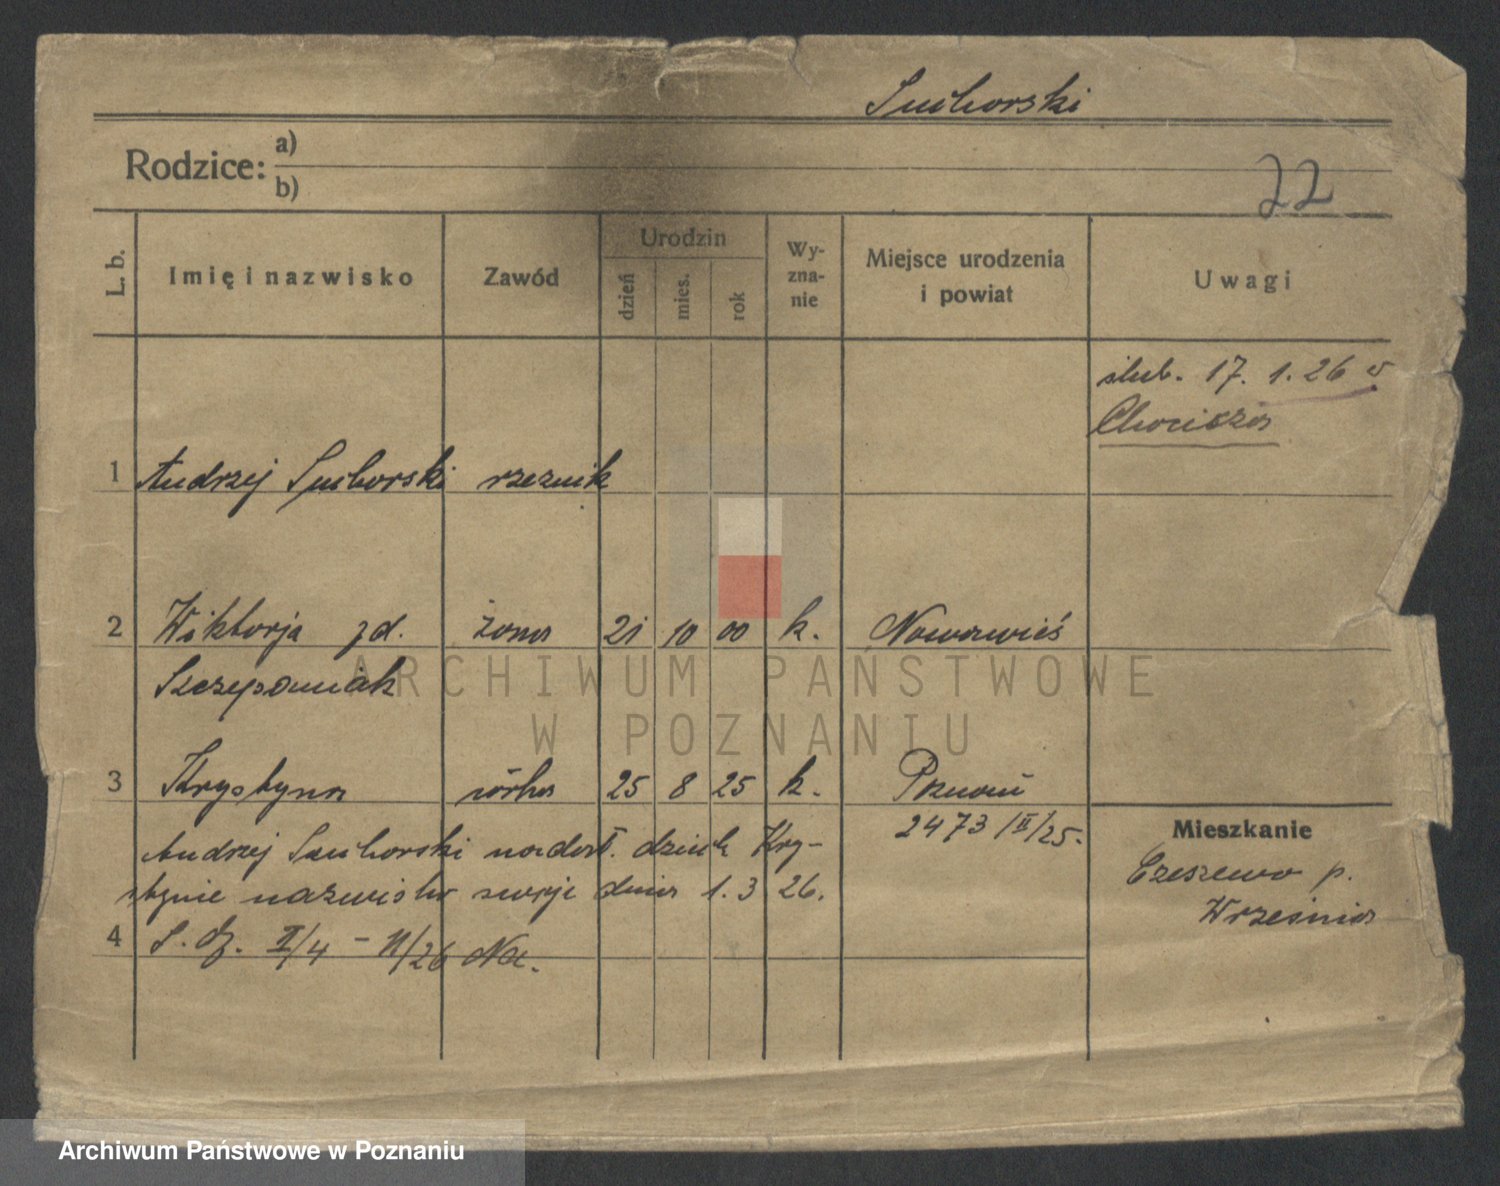 Suchorski
Rodzice: a)
b)
22
L. b.
Imię i nazwisko
Zawód
Urodzin
dzień
mies.
rok
Wy-
zna-
nie
Miejsce urodzenia
i powiat
Uwagi
ślub. 17. 1. 26 w
1 Andrzej Suchorski rzeznik
2 Wiktorja zd. żona 21 10 00 k. Nowawieś
Szczepaniak
ARCHIWUM PAŃSTWOWE
W POZNANIU
3 Krystyna córka 25 8 25 k. Poznań
2473/II/25.
Andrzej Suchorski nadał. dzieck Kry-
stynie nazwisko swoje dnia 1. 3 26.
4 II/4 - 11/26
Mieszkanie
Czeszewo p.
Września
Archiwum Państwowe w Poznaniu